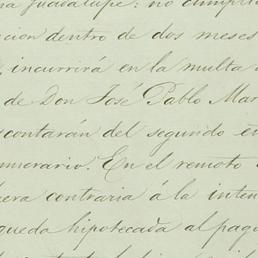 na Guadalupe: no cumplie
cion dentro de dos meses
incurrirá en la multa
de Don José Pablo Mar
contarán del segundo
numerario. En el remoto
era contraria á la inten
queda hipotecada al pago